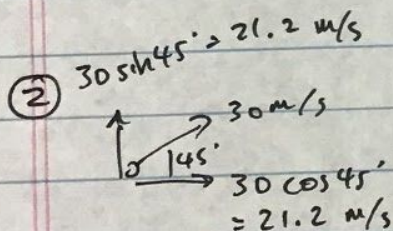 30 sin45° = 21.2 m/s
②
30 m/s
45°
30 cos 45°
= 21.2 m/s